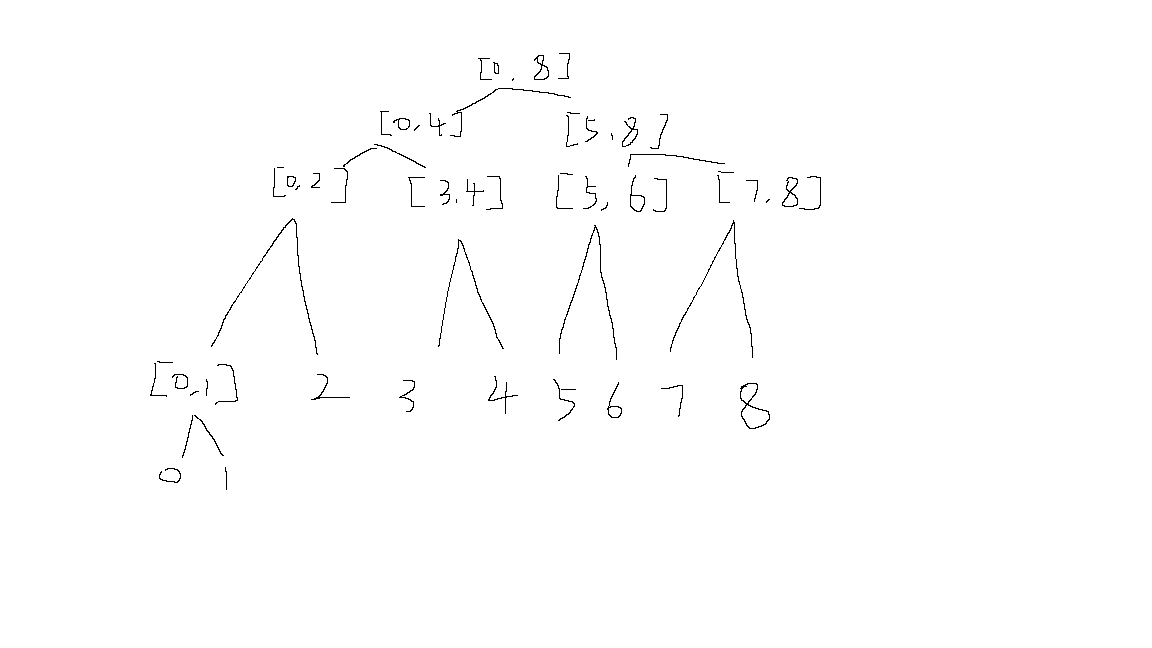 [0, 8]
[0,4] [5,8]
[0,2] [3,4] [5,6] [7,8]
[0,1] 2 3 4 5 6 7 8
0 1